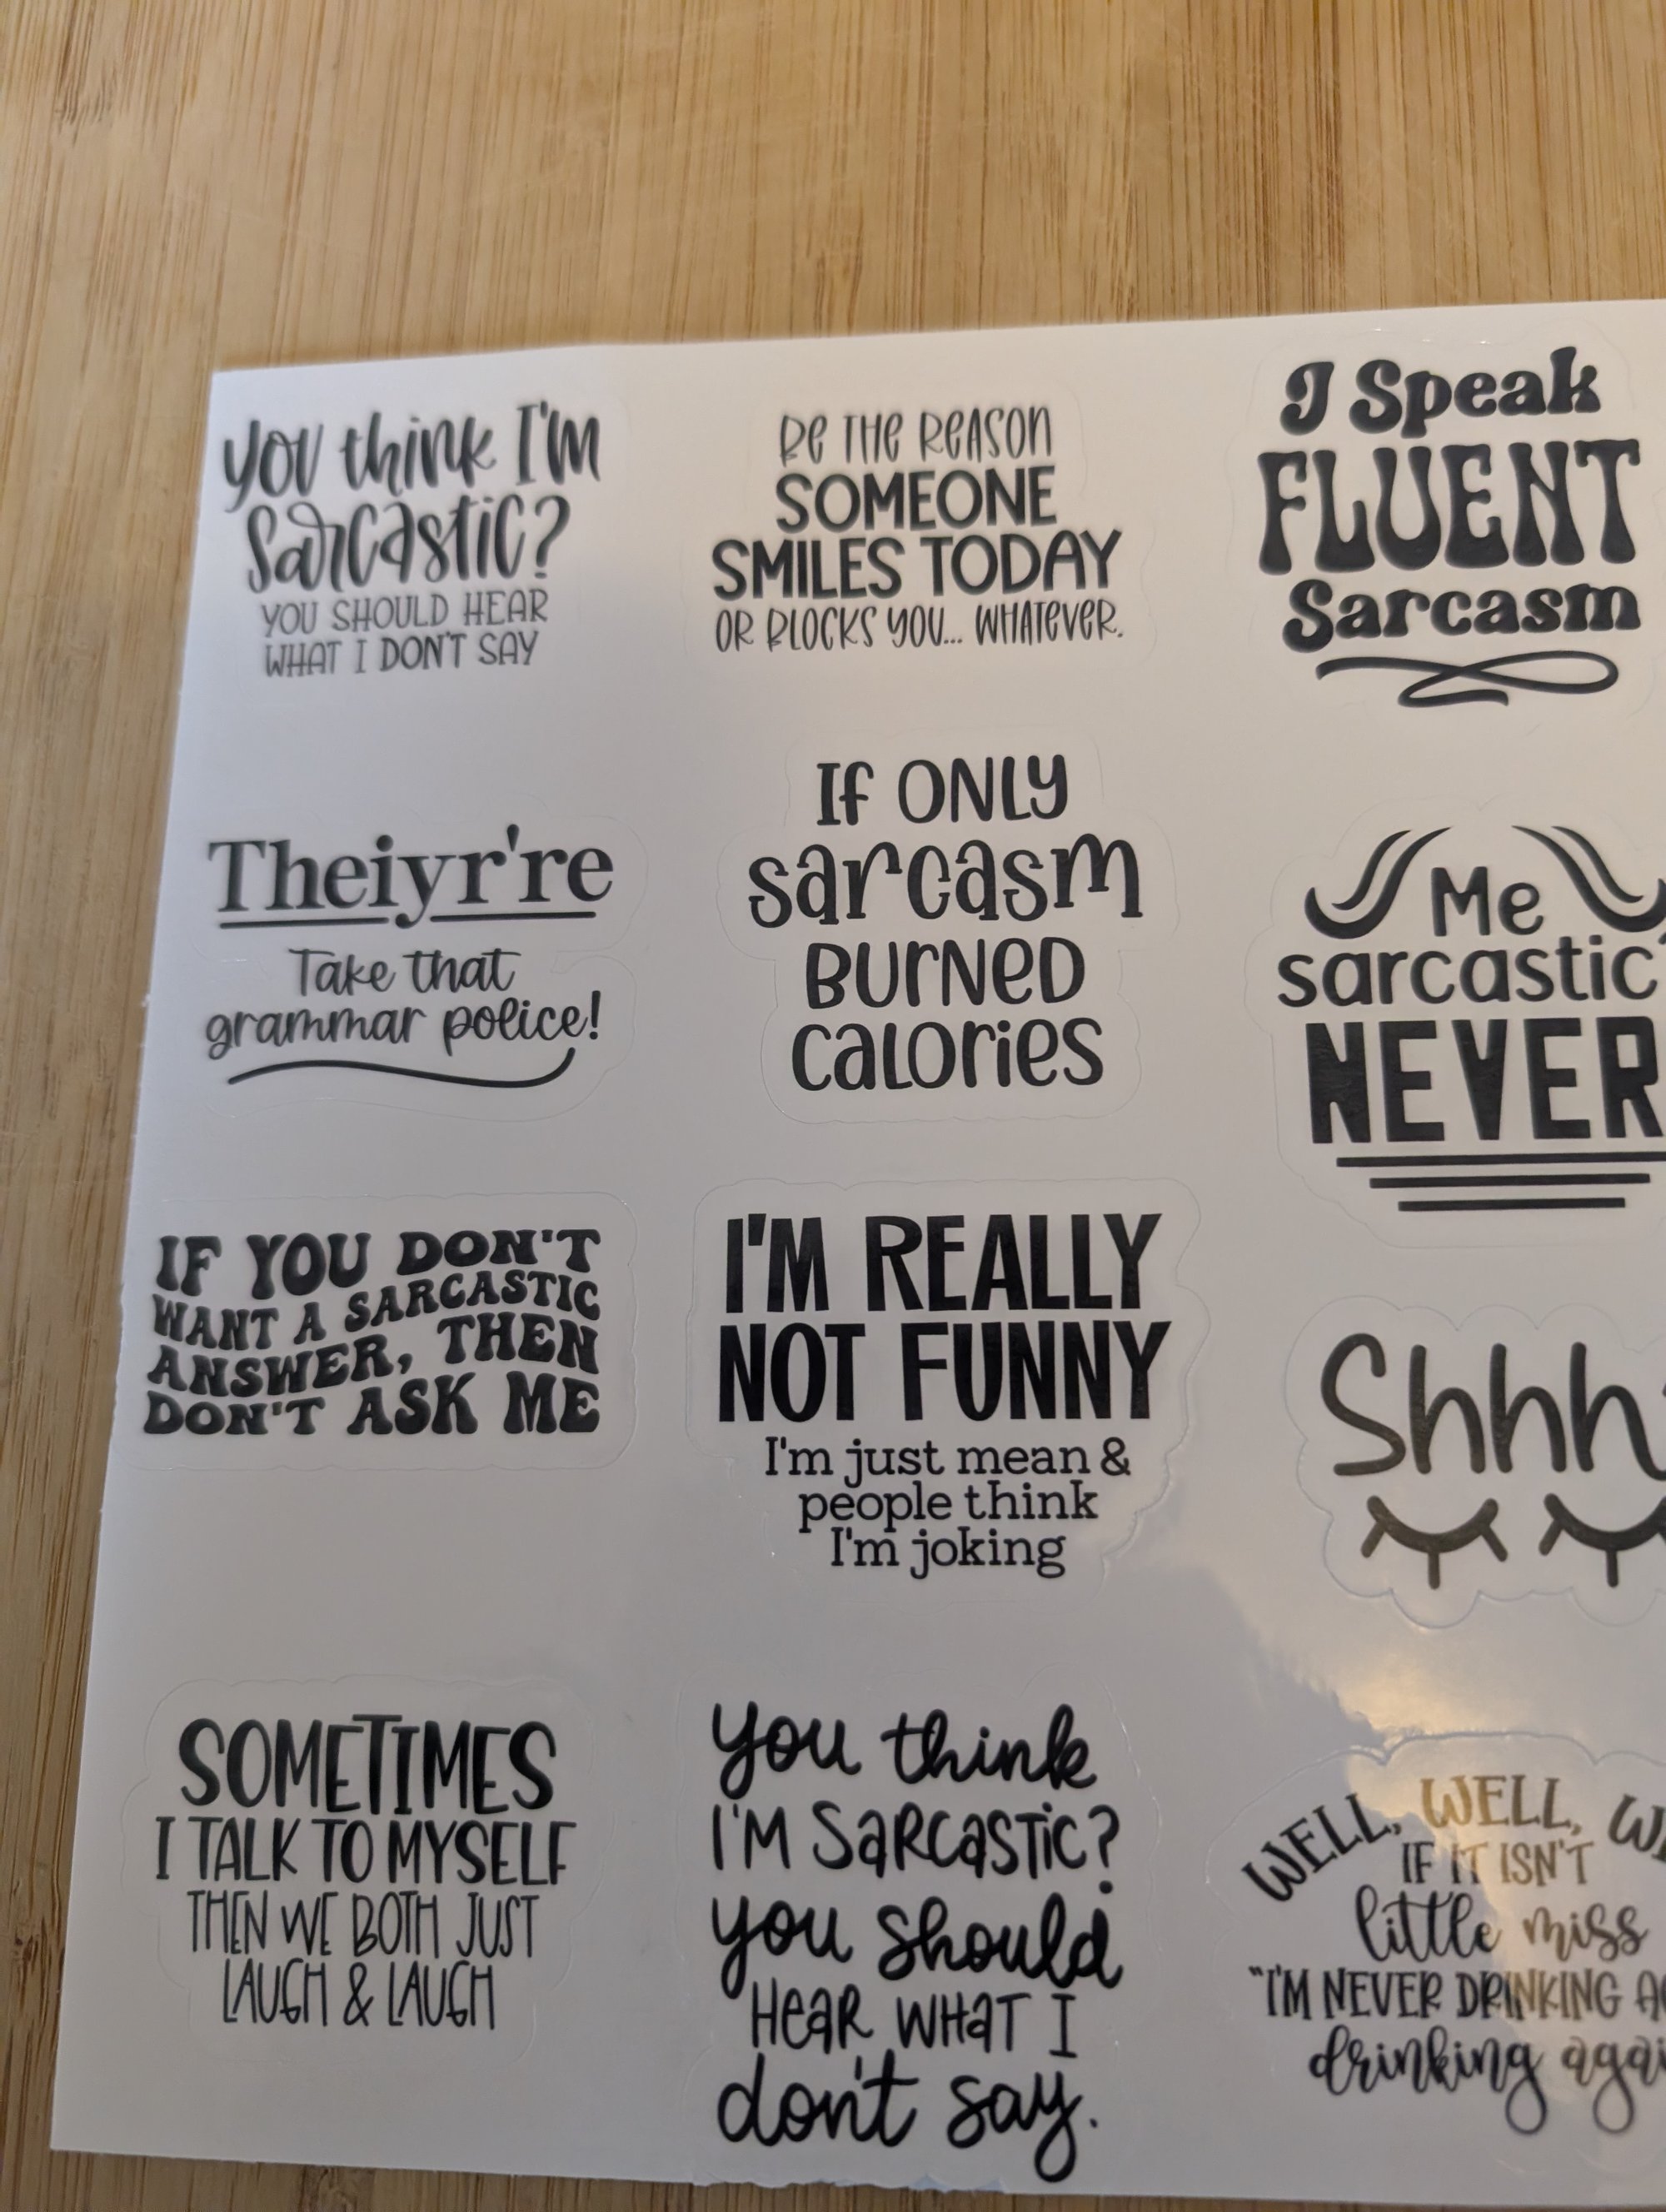 you think I'm
sarcastic?
YOU SHOULD HEAR
WHAT I DON'T SAY
Be THe ReASON
SOMEONE
SMILES TODAY
OR BLOCKS YOU... WHATeVeR.
I Speak
FLUENT
Sarcasm
Theiyr're
Take that
grammar police!
If ONLY
sarcasm
BURNED
caLories
Me
sarcastic
NEVER
IF YOU DON'T
WANT A SARCASTIC
ANSWER, THEN
DON'T ASK ME
I'M REALLY
NOT FUNNY
I'm just mean &
people think
I'm joking
Shhh
SOMETIMES
I TALK TO MYSELF
THEN WE BOTH JUST
LAUGH & LAUGH
you think
I'M SaRcasTic?
you should
HeaR WHaT I
don't say.
WELL, WELL,
IF IT ISN'T
little miss
"I'M NEVER DRINKING
drinking